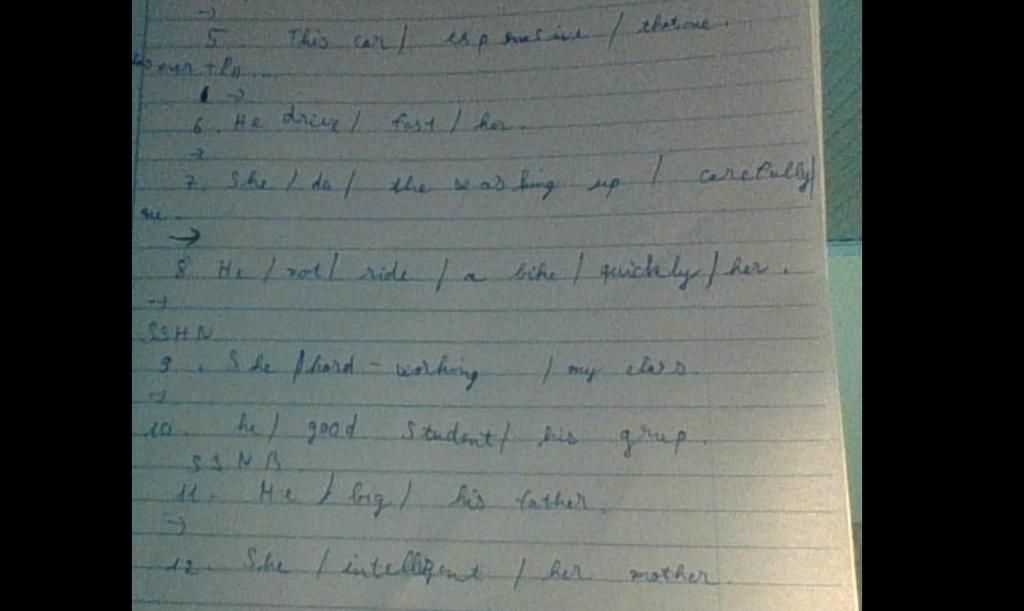 →
5. This car / expensive / that one.
→
6. He drive / fast / her.
→
7. She / do / the washing up / carefully /
me.
→
8. He / not / ride / a bike / quickly / her.
→
SSHN
9. She / hard-working / my class.
→
10. he / good student / his grup.
SSNB
11. He / big / his father.
→
12. She / intelligent / her mother.